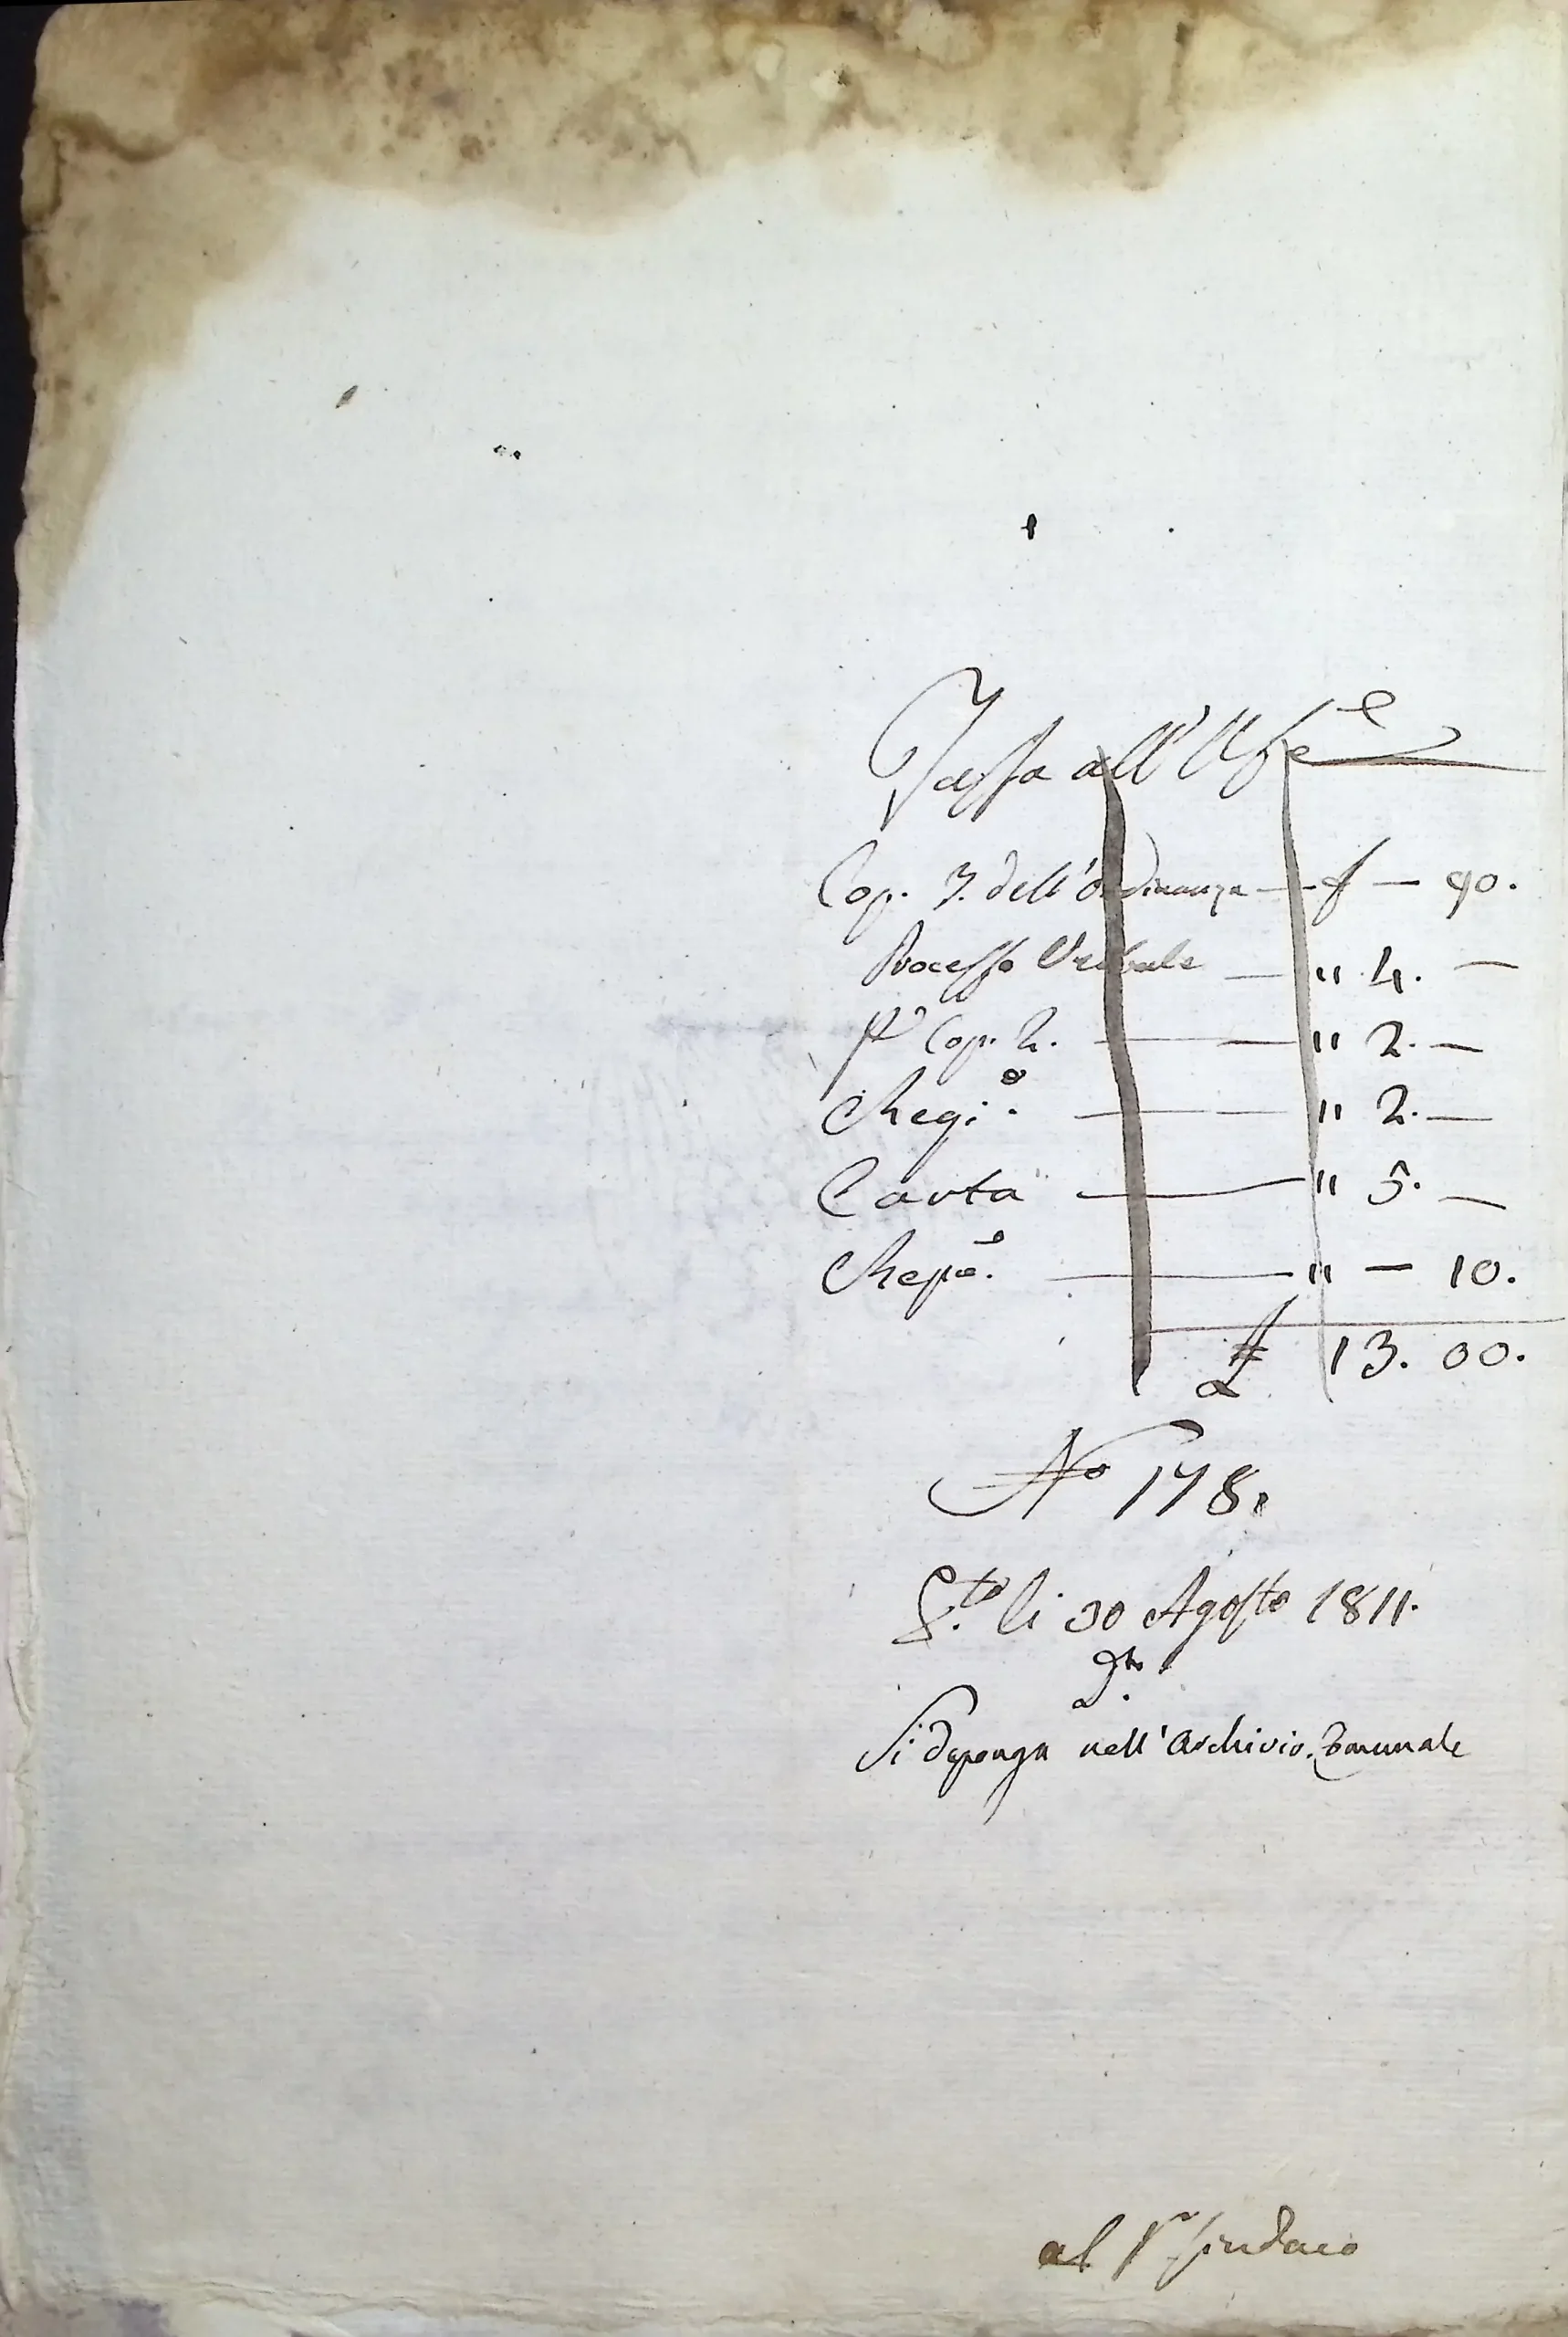 Tassa all' Usc.e
Cop. 3. dell' Ordinanza — £ — 90.
Processo Verbale — " 4. —
Cop. 2. — " 2. —
Regi.o — " 2. —
Carta — " 5. —
Repe.o — " — 10.
£ 13. 00.
No 178.
li 30 Agosto 1811.
Si deponga nell' Archivio Comunale
al Sr Sindaco